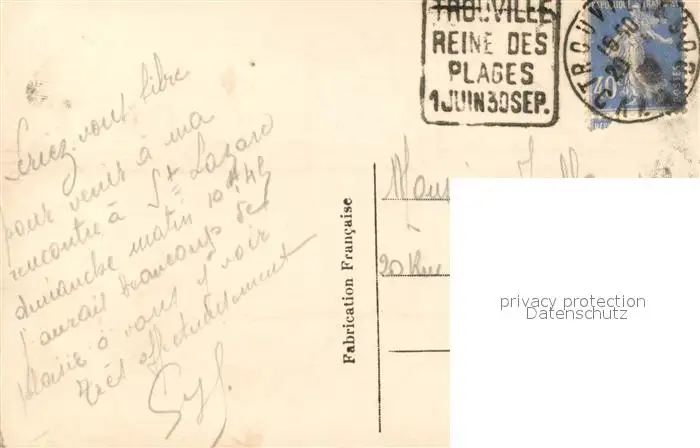 TROUVILLE
REINE DES
PLAGES
1 JUIN 30 SEP.
TROUV
16-10
40
Seriez-vous libre
pour venir à ma
rencontre à St Lazare
dimanche matin 10h42
j'aurais beaucoup de
plaisir à vous voir
Très affectueusement
Fabrication Française
Monsieur
20 Rue
privacy protection
Datenschutz